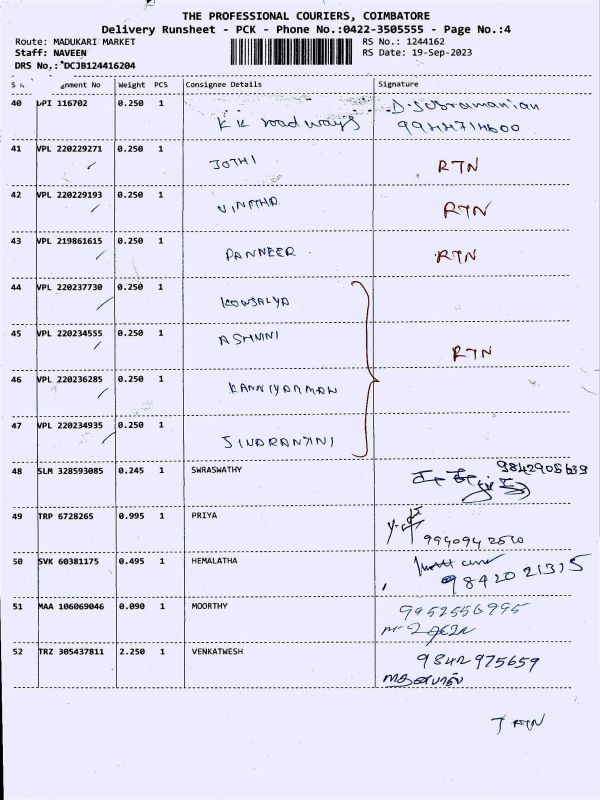 THE PROFESSIONAL COURIERS, COIMBATORE
Delivery Runsheet - PCK - Phone No.:0422-3505555 - Page No.:4
Route: MADUKARI MARKET
RS No.: 1244162
Staff: NAVEEN
RS Date: 19-Sep-2023
DRS No.: DCJB124416204
S gnment No Weight PCS Consignee Details Signature
40 LPI 116702 0.250 1 KK roadways D. Subramanian
41 VPL 220229271 0.250 1 JOTHI RTN
42 VPL 220229193 0.250 1 VINITHA RTN
43 VPL 219861615 0.250 1 PANNEER RTN
44 VPL 220237730 0.250 1 KOWSALYA
45 VPL 220234555 0.250 1 ASHWINI RTN
46 VPL 220236285 0.250 1 KANNIYAMMAN
47 VPL 220234935 0.250 1
48 SLM 328593085 0.245 1 SWRASWATHY 9842905639
49 TRP 6728265 0.995 1 PRIYA
9940942510
50 SVK 60381175 0.495 1 HEMALATHA
9842021315
51 MAA 106069046 0.090 1 MOORTHY 9952556995
52 TRZ 305437811 2.250 1 VENKATWESH 9842975659
7 RTN